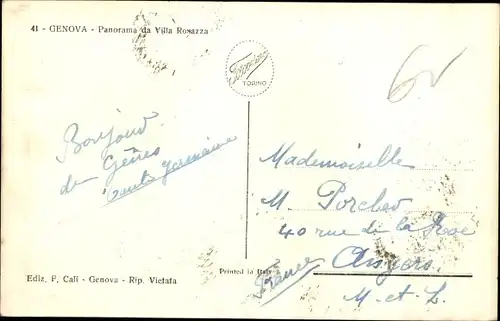 41 - GENOVA - Panorama da Villa Rosazza
TORINO
6v
Bonjour
de Gênes
tante Germaine
Mademoiselle
M. Porcher
40 rue de la Rose
Angers
France
M. et L.
Printed in Italy
Ediz. F. Calì - Genova - Rip. Vietata